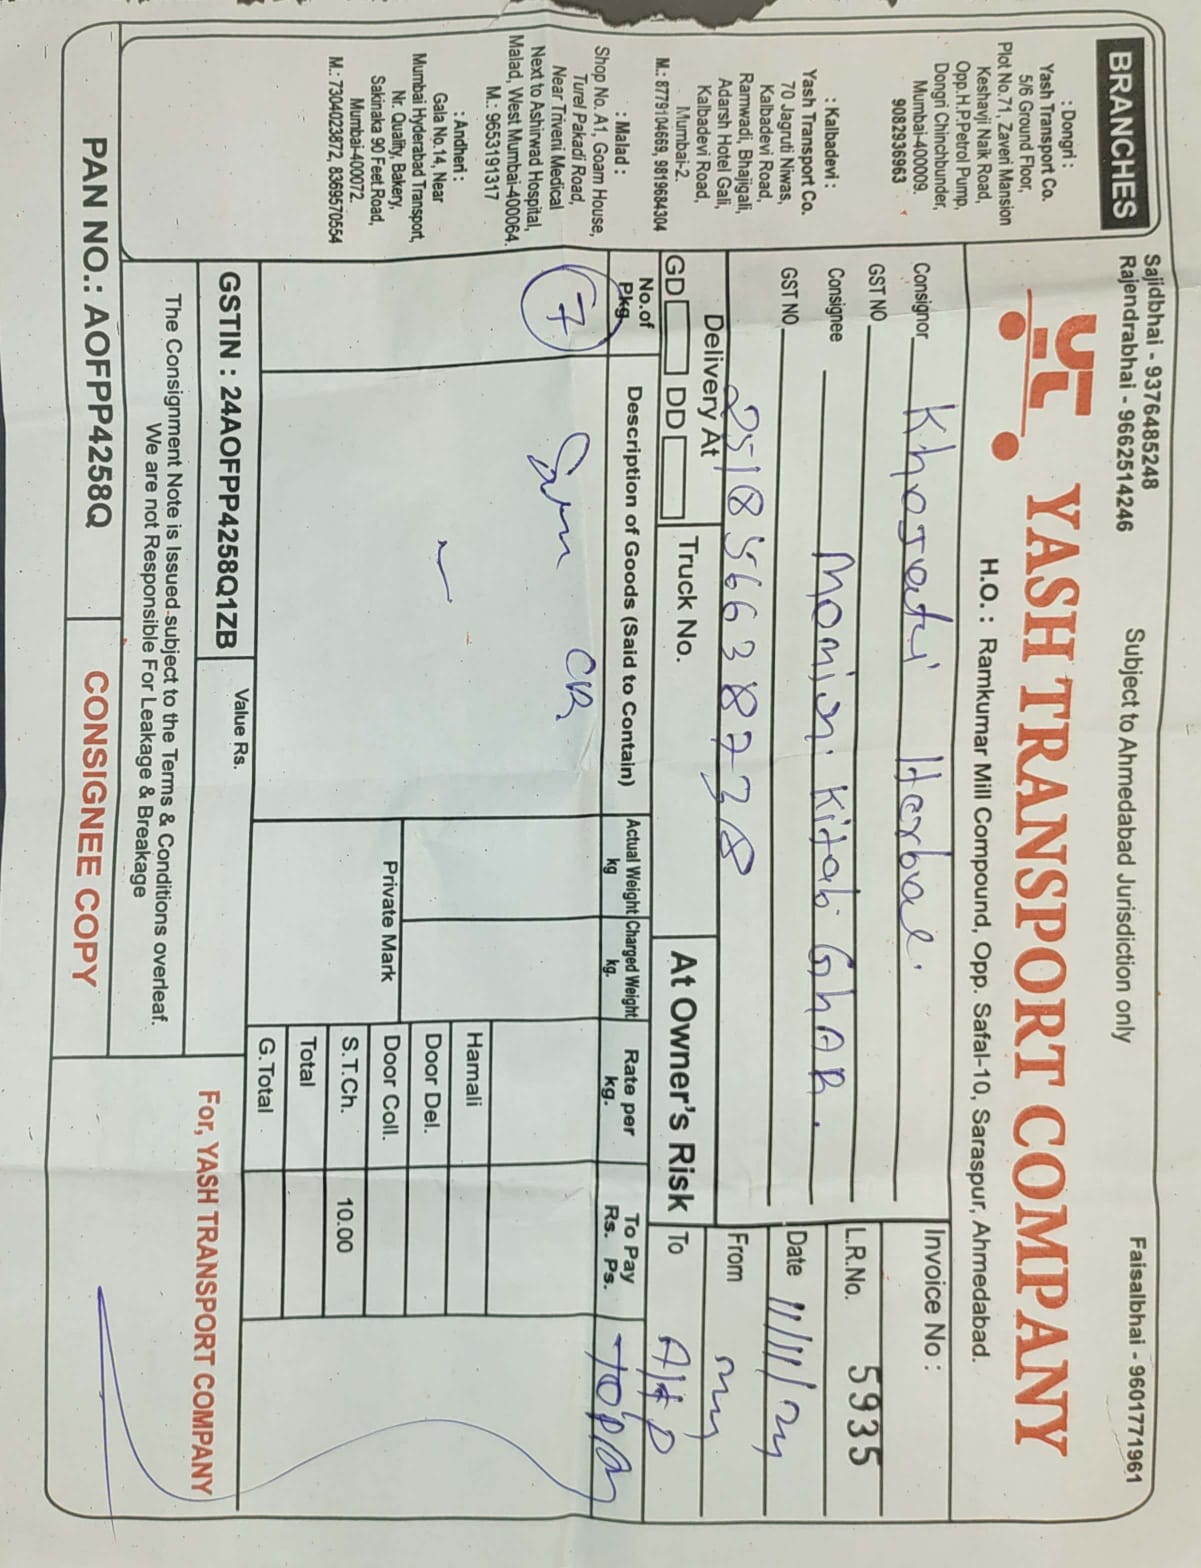 Sajidbhai - 9376485248
Rajendrabhai - 9662514246
Subject to Ahmedabad Jurisdiction only
Faisalbhai - 9601771961
YASH TRANSPORT COMPANY
H.O. : Ramkumar Mill Compound, Opp. Safal-10, Saraspur, Ahmedabad.
BRANCHES
: Dongri :
Yash Transport Co.
5/6 Ground Floor,
Plot No.71, Zaveri Mansion
Keshavji Naik Road,
Opp.H.P.Petrol Pump,
Dongri Chinchbunder,
Mumbai-400009.
9082936963
: Kalbadevi :
Yash Transport Co.
70 Jagruti Niwas,
Kalbadevi Road,
Ramwadi, Bhajigali,
Adarsh Hotel Gali,
Kalbadevi Road,
Mumbai-2.
M.: 8779104669, 9819684304
: Malad :
Shop No. A1, Goam House,
Turel Pakadi Road,
Near Triveni Medical
Next to Ashirwad Hospital,
Malad, West Mumbai-400064.
M.: 9653191317
: Andheri :
Gala No.14, Near
Mumbai Hyderabad Transport,
Nr. Quality, Bakery,
Sakinaka 90 Feet.Road,
Mumbai-400072.
M.: 7304023872, 8369570554
Consignor Khojati Herbal
GST NO
Consignee Momin Kitab Ghar.
GST NO
Invoice No :
L.R.No. 5935
Date 11/11/24
From
To AHD
Delivery At
GD DD
Truck No.
At Owner's Risk
No.of Pkg.
Description of Goods (Said to Contain)
Actual Weight kg
Charged Weight kg.
Rate per kg.
To Pay Rs. Ps.
Topay
7
CR
Hamali
Door Del.
Private Mark
Door Coll.
S.T.Ch. 10.00
Total
G. Total
GSTIN : 24AOFPP4258Q1ZB
Value Rs.
The Consignment Note is Issued subject to the Terms & Conditions overleaf.
We are not Responsible For Leakage & Breakage
For, YASH TRANSPORT COMPANY
PAN NO.: AOFPP4258Q
CONSIGNEE COPY